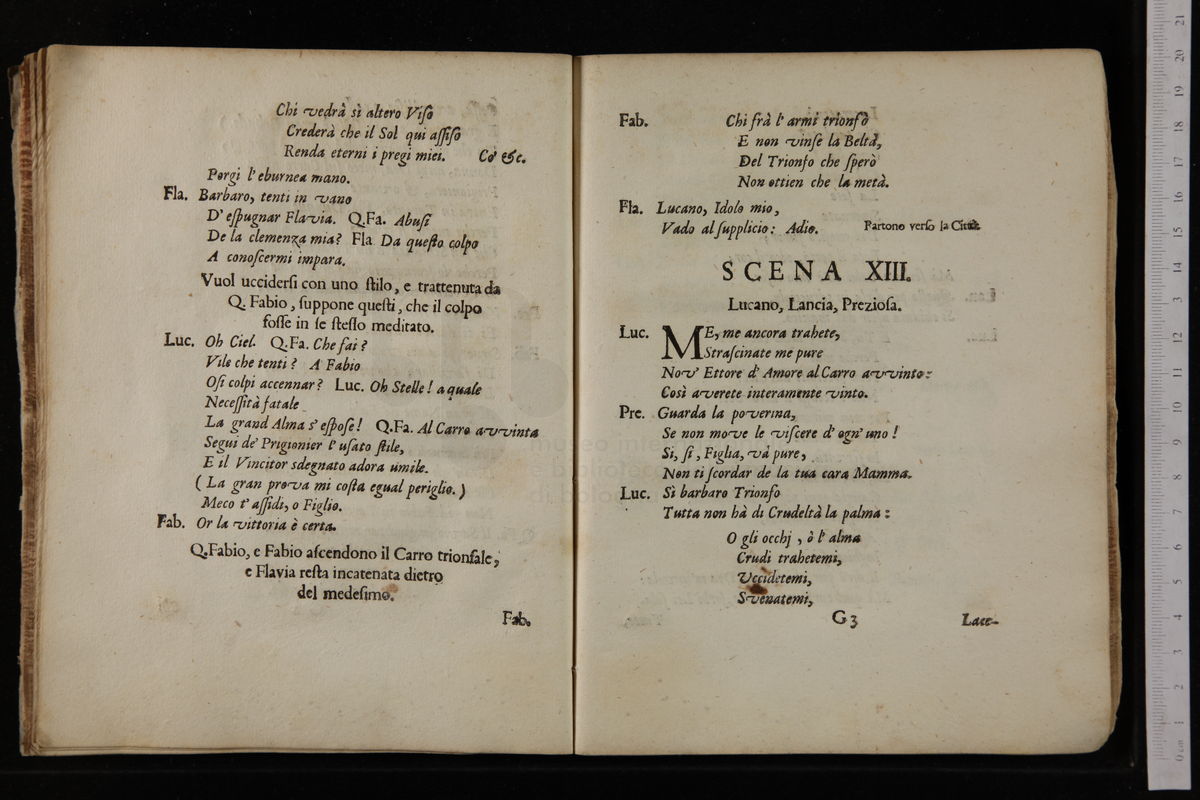 Chi vedrà sì altero Viſo
Crederà che il Sol qui aſſiſo
Renda eterni i pregi miei. Co' &c.
Porgi l' eburnea mano.
Fla. Barbaro, tenti in vano
D' eſpugnar Flavia. Q.Fa. Abuſi
De la clemenza mia? Fla Da queſto colpo
A conoſcermi impara.
Vuol ucciderſi con uno ſtilo, e trattenuta da
Q. Fabio, ſuppone queſti, che il colpo
foſſe in ſe ſteſſo meditato.
Luc. Oh Ciel. Q.Fa. Che fai?
Vile che tenti? A Fabio
Oſi colpi accennar? Luc. Oh Stelle! a quale
Neceſſità fatale
La grand Alma s' eſpoſe! Q.Fa. Al Carro avvinta
Segui de' Prigionier l' uſato ſtile,
E il Vincitor sdegnato adora umile.
(La gran prova mi coſta egual periglio.)
Meco t' aſſidi, o Figlio.
Fab. Or la vittoria è certa.
Q.Fabio, e Fabio aſcendono il Carro trionfale,
e Flavia reſta incatenata dietro
del medeſimo.
Fab.
Fab. Chi frà l' armi trionfò
E non vinſe la Beltà,
Del Trionfo che ſperò
Non ottien che la metà.
Fla. Lucano, Idolo mio,
Vado al ſupplicio: Adio. Partono verſo la Città.
SCENA XIII.
Lucano, Lancia, Prezioſa.
Luc. ME, me ancora trahete,
Straſcinate me pure
Nov' Ettore d' Amore al Carro avvinto:
Così averete interamente vinto.
Pre. Guarda la poverina,
Se non move le viſcere d' ogn' uno!
Si, ſi, Figlia, và pure,
Non ti ſcordar de la tua cara Mamma.
Luc. Sì barbaro Trionfo
Tutta non hà di Crudeltà la palma:
O gli occhj, ò l' alma
Crudi trahetemi,
Uccidetemi,
Svenatemi,
G3 Lace-
21
20
19
18
17
16
15
14
13
12
11
10
9
8
7
6
5
4
3
2
1
0 cm